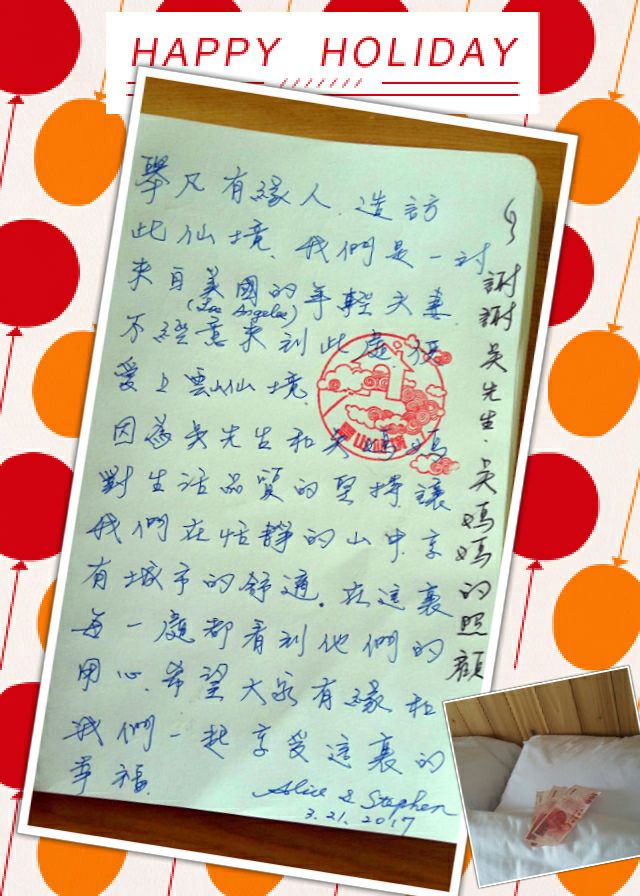 HAPPY HOLIDAY
舉凡有緣人,造訪
此仙境.我們是一對
來自美國的年輕夫妻
(Los Angeles)
不經意來到此處
愛上雲山仙境.
因為吳先生和吳媽媽
對生活品質的堅持,讓
我們在恬靜的山中享
有城市的舒適.在這裏
每一處都看到他們的
用心.希望大家有緣和
我們一起享受這裏的
幸福.
Alice & Stephen
3.21.2017
謝謝吳先生.吳媽媽的照顧